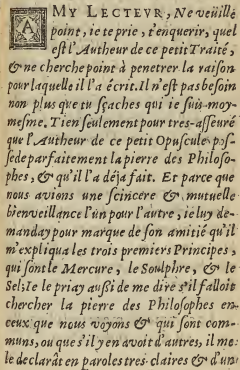 AMY LECTEVR, Ne veüillé
point, ie te prie, t'enquerir, quel
est l'Autheur de ce petit Traité,
& ne cherche point à penetrer la raison
pour laquelle il l'a écrit. Il n'est pas besoin
non plus que tu sçaches qui ie suis-moy-
mesme. Tien seulement pour tres-asseuré
que l'Autheur de ce petit Opuscule pos-
sede parfaitement la pierre des Philoso-
phes, & qu'il l'a déja fait. Et parce que
nous avions une scincere & mutuelle
bienveillance l'un pour l'autre, ie luy de-
manday pour marque de son amitié qu'il
m'expliqua les trois premiers Principes,
qui sont le Mercure, le Soulphre, & le
Sel; Ie le priay aussi de me dire s'il falloit
chercher la pierre des Philosophes en
ceux que nous voyons & qui sont com-
muns, ou que s'il y en avoit d'autres, il me
le declarât en paroles tres-claires & d'un